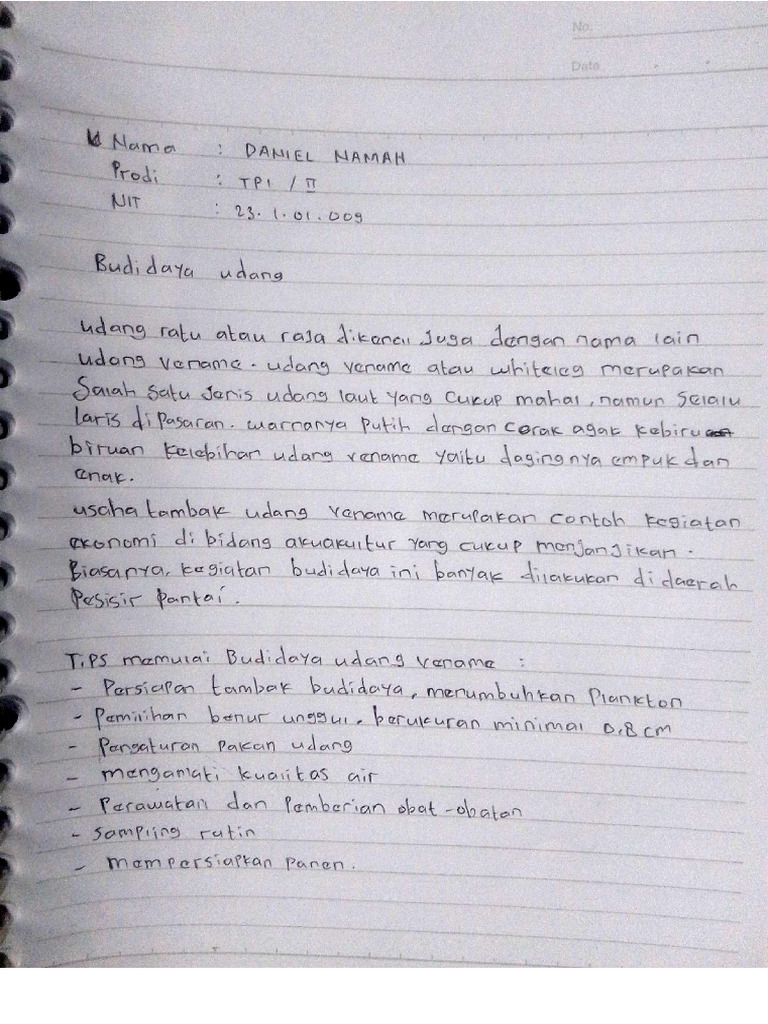 No.
Date
Nama : DANIEL NAMAH
Prodi : TPI / II
NIT : 23.1.01.009
Budidaya udang
udang ratu atau raja dikenal Juga dengan nama lain
udang Vename. udang Vename atau whiteleg merupakan
Salah Satu Jenis udang laut yang Cukup mahal, namun Selalu
laris dipasaran. warnanya Putih dengan Corak agak Kebiru
biruan Kelebihan udang Vename yaitu dagingnya empuk dan
enak.
usaha tambak udang Vename merupakan contoh Kegiatan
ekonomi di bidang akuakultur yang cukup menjanjikan.
Biasanya, kegiatan budidaya ini banyak dilakukan di daerah
Pesisir Pantai.
TiPS memulai Budidaya udang Vename :
- Persiapan tambak budidaya, menumbuhkan Plankton
- Pemilihan benur unggul, berukuran minimal 0,8 cm
- Pengaturan Pakan udang
- mengamati kualitas air
- Perawatan dan Pemberian obat-obatan
- Sampling rutin
- mempersiapkan Panen.